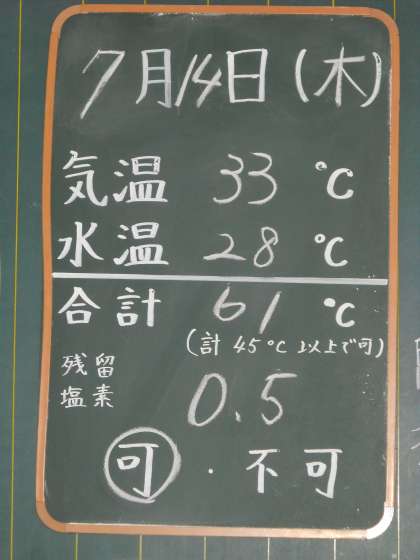 7月14日(木)
気温 33 ℃
水温 28 ℃
合計 61 ℃
(計 45℃以上で可)
残留
塩素 0.5
可・不可